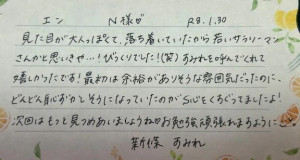 エン N様が R8.1.30
見た目が大人っぽくて、落ち着いていたから若いサラリーマン
さんかと思いきや…!びっくりでした!(笑)すみれを呼んでくれて
嬉しかったです!最初は余裕がありそうな雰囲気だったのに、
どんどん恥ずかしそうになっていたのがS心をくすぐってましたよ!
次回はもっと見つめあいましょうね お勉強頑張れますように
新條 すみれ